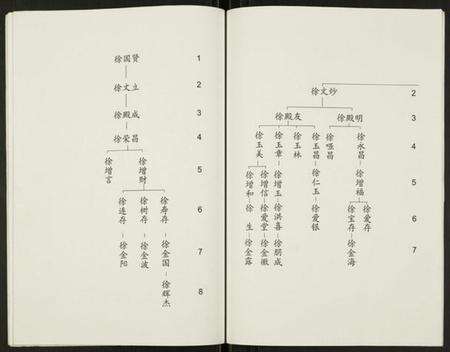 徐国贤 1
徐文立 2
徐殿成 3
徐荣昌 4
徐增言 徐增财 5
徐连存 徐树存 徐寿存 6
徐金阳 徐金波 徐金国 7
徐辉杰 8
徐文炒 2
徐殿友 徐殿明 3
徐玉美 徐玉章 徐玉林 徐玉昌 徐嘔昌 徐永昌 4
徐增和 徐增信 徐增玉 徐仁玉 徐增福 5
徐生 徐爱堂 徐洪喜 徐爱银 徐宝存 徐爱存 6
徐金露 徐金微 徐朋成 徐金海 7